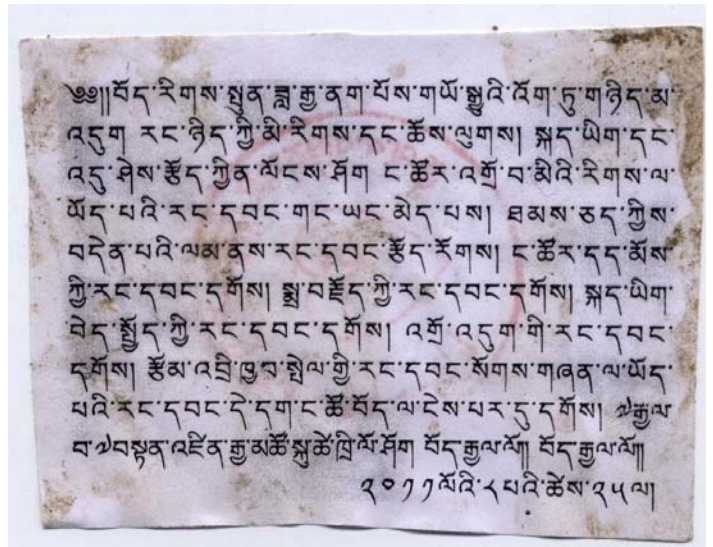 ༄༅།།བོད་རིགས་སྤུན་ཟླ་རྒྱ་ནག་པོས་གཡོ་སྒྱུའི་འོག་ཏུ་གཉིད་མ་
འདུག རང་ཉིད་ཀྱི་མི་རིགས་དང་ཆོས་ལུགས། སྐད་ཡིག་དང་
འདུ་ཤེས་རྩོད་ཀྱིན་ལོངས་ཤོག ང་ཚོར་འགྲོ་བ་མིའི་རིགས་ལ་
ཡོད་པའི་རང་དབང་གང་ཡང་མེད་པས། ཐམས་ཅད་ཀྱིས་
བདེན་པའི་ལམ་ནས་རང་དབང་རྩོད་རོགས། ང་ཚོར་དད་མོས་
ཀྱི་རང་དབང་དགོས། སྨྲ་བརྗོད་ཀྱི་རང་དབང་དགོས། སྐད་ཡིག་
བེད་སྤྱོད་ཀྱི་རང་དབང་དགོས། འགྲོ་འདུག་གི་རང་དབང་
དགོས། རྩོམ་འབྲི་ཁྱབ་སྤེལ་གྱི་རང་དབང་སོགས་གཞན་ལ་ཡོད་
པའི་རང་དབང་དེ་དག་ང་ཚོ་བོད་ལ་ངེས་པར་དུ་དགོས། ༧རྒྱལ་
བ་༧བསྟན་འཛིན་རྒྱ་མཚོ་སྐུ་ཚེ་ཁྲི་ལོ་ཤོག བོད་རྒྱལ་ལོ།། བོད་རྒྱལ་ལོ།།
༢༠༡༡ལོའི་༨པའི་ཚེས་༢༥ལ།